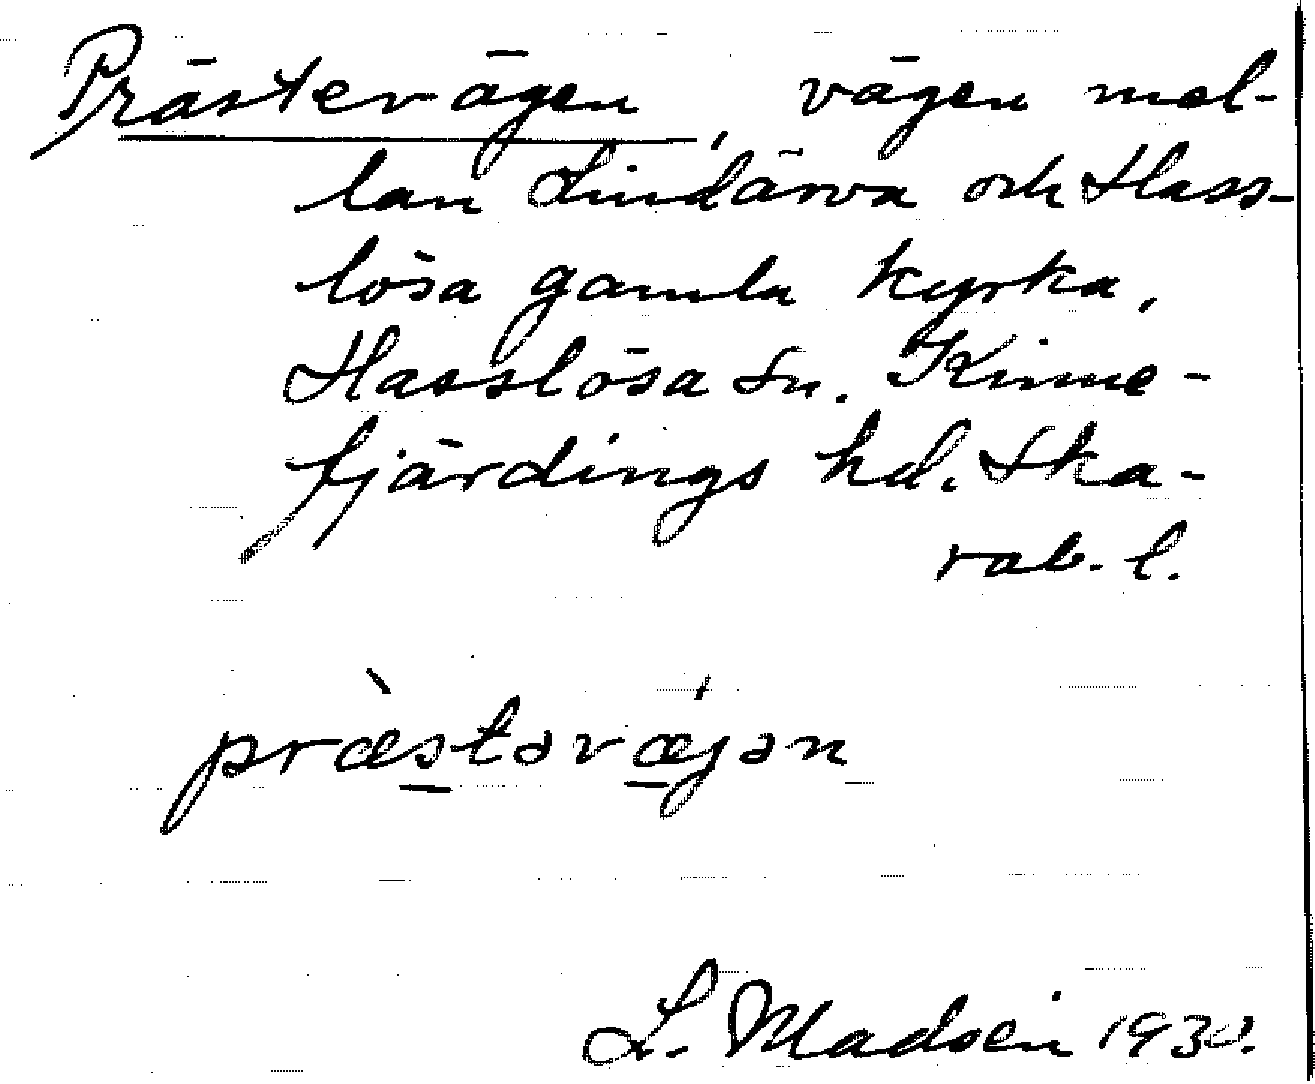 Prästevägen, vägen mel-
lan Lindärva och Hass-
lösa gamla kyrka,
Hasslösa sn. Kinne-
fjärdings hd. Ska-
rab. l.
præ̀stəvǽjən
L. Madsén 1930.